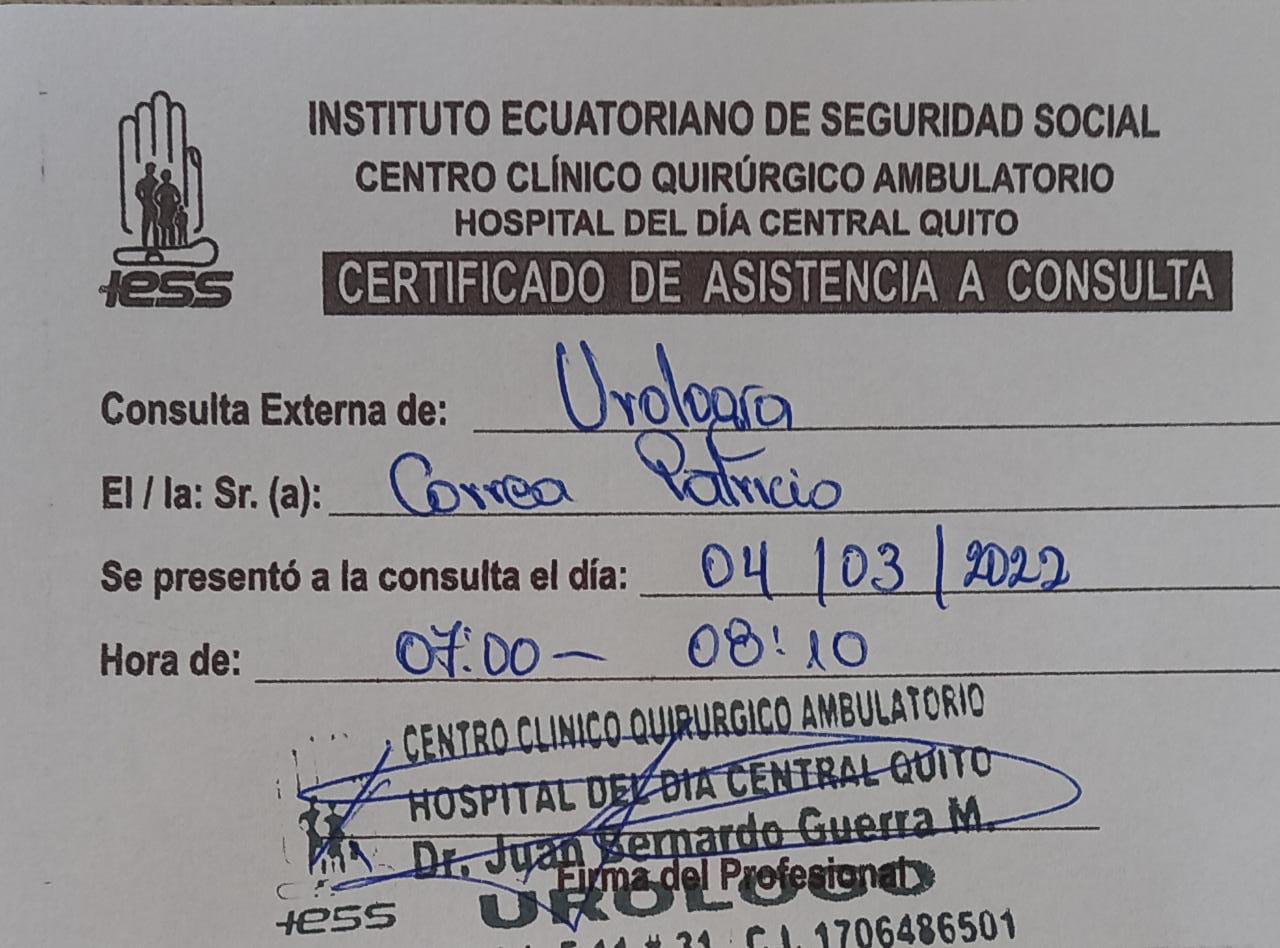 INSTITUTO ECUATORIANO DE SEGURIDAD SOCIAL
CENTRO CLÍNICO QUIRÚRGICO AMBULATORIO
HOSPITAL DEL DÍA CENTRAL QUITO
IESS
CERTIFICADO DE ASISTENCIA A CONSULTA
Consulta Externa de: Urología
El / la: Sr. (a): Correa Patricio
Se presentó a la consulta el día: 04 / 03 / 2022
Hora de: 07:00 - 08:10
CENTRO CLINICO QUIRURGICO AMBULATORIO
HOSPITAL DEL DIA CENTRAL QUITO
Dr. Juan Bernardo Guerra M.
Firma del Profesional
IESS UROLOGO
C.I. 1706486501